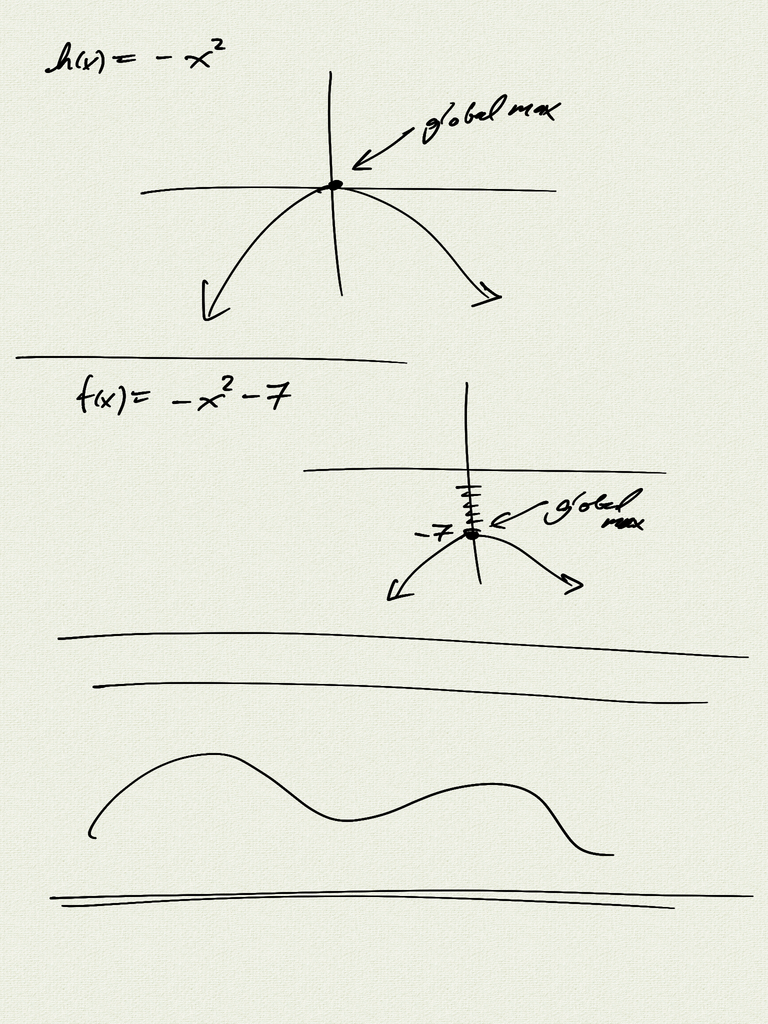 h(x) = - x²
global max
f(x) = - x² - 7
global
max
-7